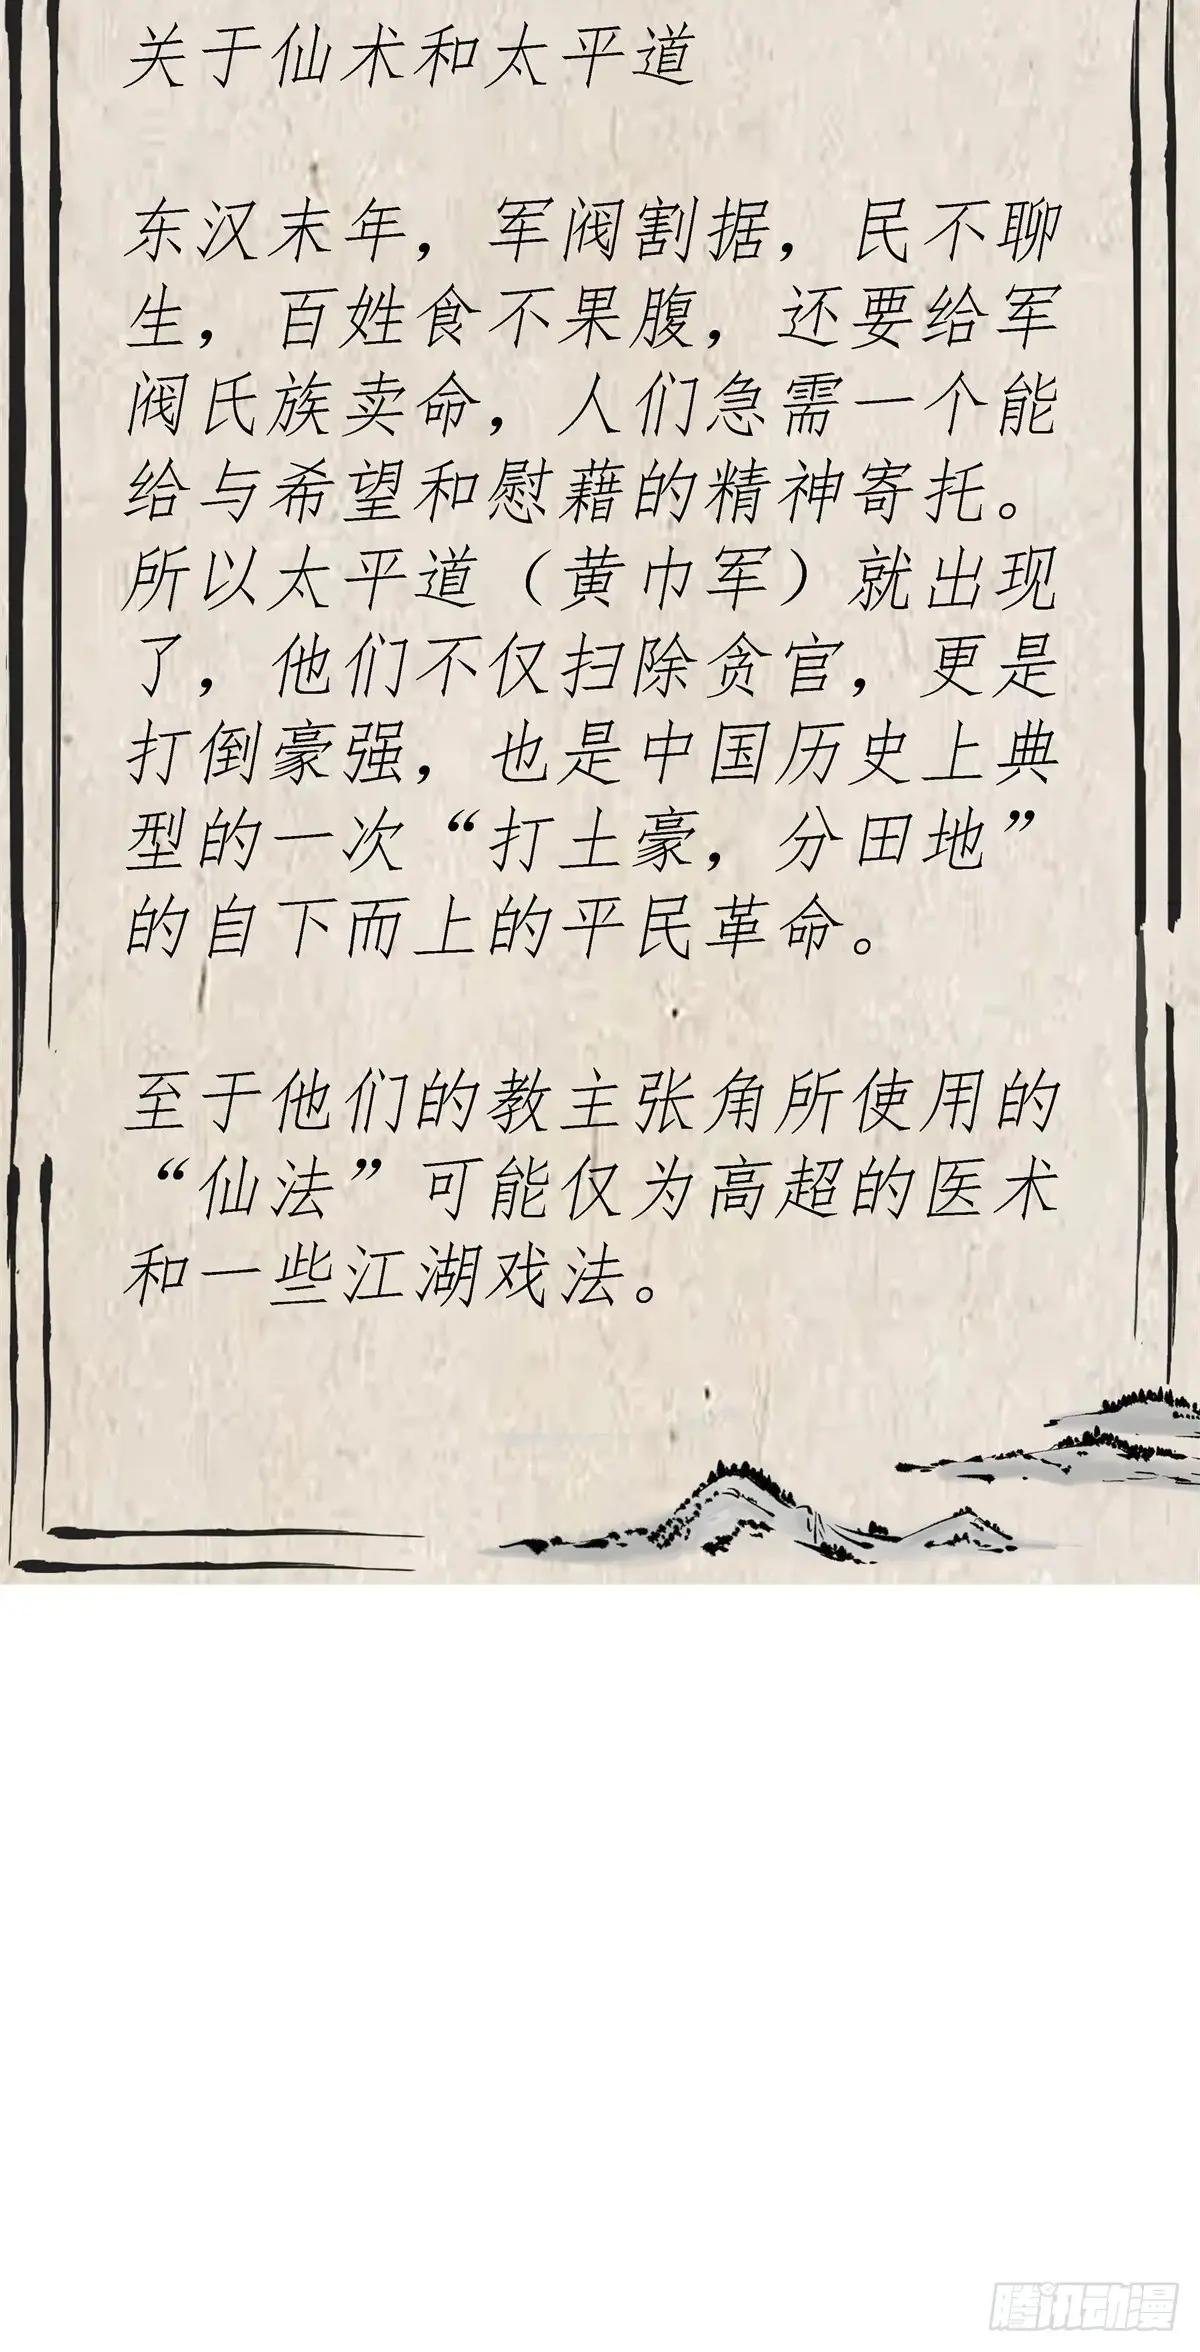 关于仙术和太平道
东汉末年，军阀割据，民不聊
生，百姓食不果腹，还要给军
阀氏族卖命，人们急需一个能
给与希望和慰藉的精神寄托。
所以太平道（黄巾军）就出现
了，他们不仅扫除贪官，更是
打倒豪强，也是中国历史上典
型的一次“打土豪，分田地”
的自下而上的平民革命。
至于他们的教主张角所使用的
“仙法”可能仅为高超的医术
和一些江湖戏法。
腾讯动漫